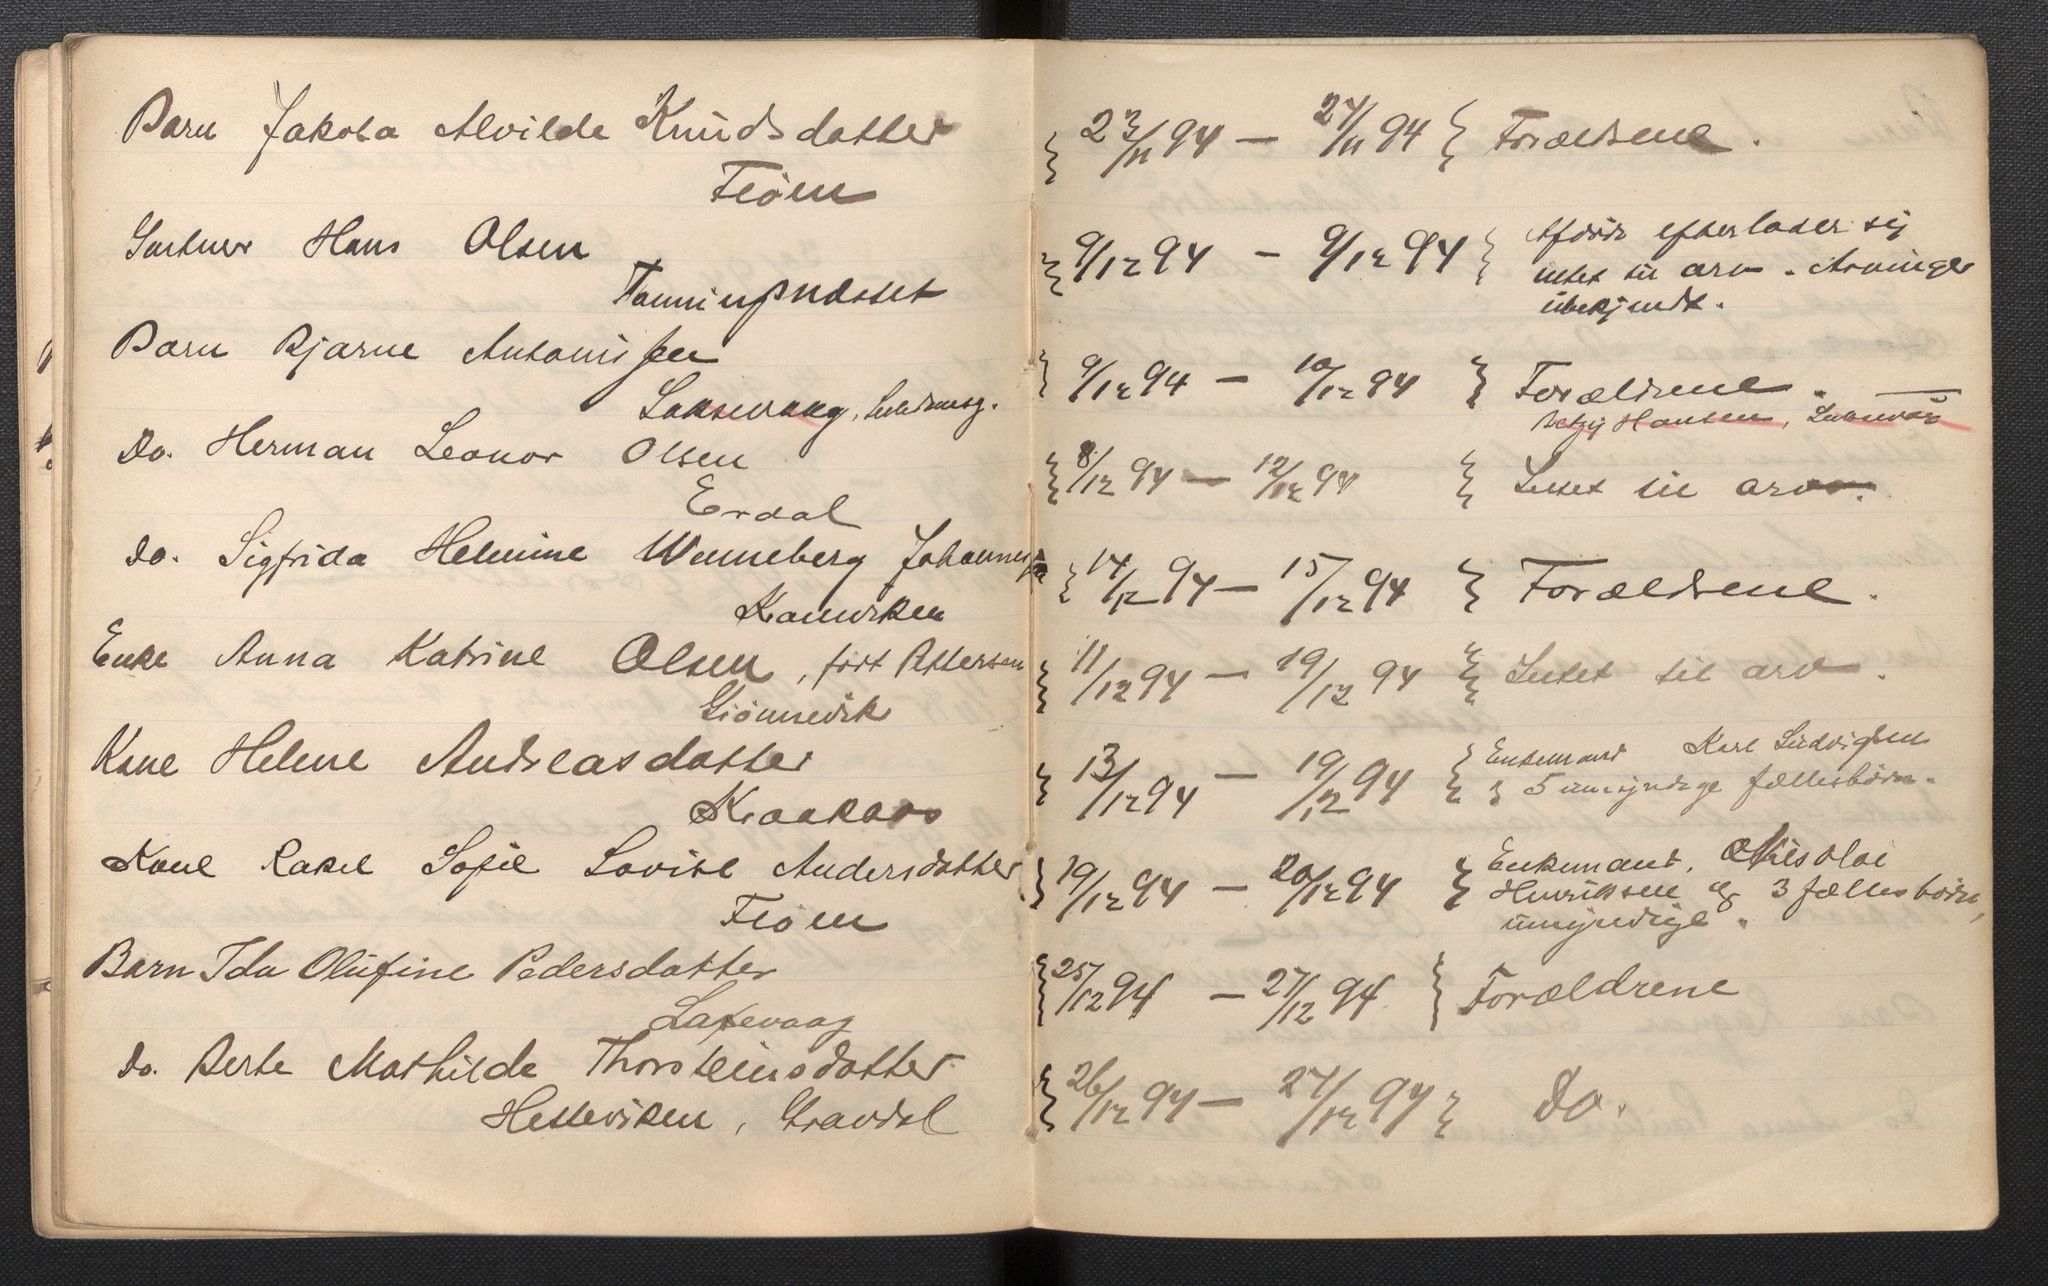 Barn Jakoba Alvilde Knudsdatter
Fiøsen
23/11 94 — 24/11 94 Forældrene.
Gartner Hans Olsen
9/12 94 — 9/12 94 Afdøde efterlader sig
intet til arv. Arvinger
ubekjendt.
Barn Bjarne Antonissen
Laksevaag,
9/12 94 — 10/12 94 Forældrene.
Betzy Hansen, Laksevaag
Do. Herman Leonor Olsen
Erdal
8/12 94 — 12/12 94 Intet til arv.
Do. Sigfrida Helmine Wenneberg Johannessen
14/12 94 — 15/12 94 Forældrene.
Enke Anna Katrine Olsen, født Pettersen
Gjønnevik
11/12 94 — 19/12 94 Intet til arv.
Kone Helene Andreasdatter
13/12 94 — 19/12 94 Enkemand Karl Ludvigsen
& 5 umyndige fællesbørn.
Kone Rakel Sofie Lovise Andersdatter
Fiøsen
19/12 94 — 20/12 94 Enkemand, Nils Olai
Henriksen og 3 fællesbørn,
umyndige.
Barn Ida Olufine Pedersdatter
Laxevaag
25/12 94 — 27/12 94 Forældrene
Do. Berte Mathilde Thorsteinsdatter
Hetleviken, Gravdal
26/12 94 — 27/12 94 Do.